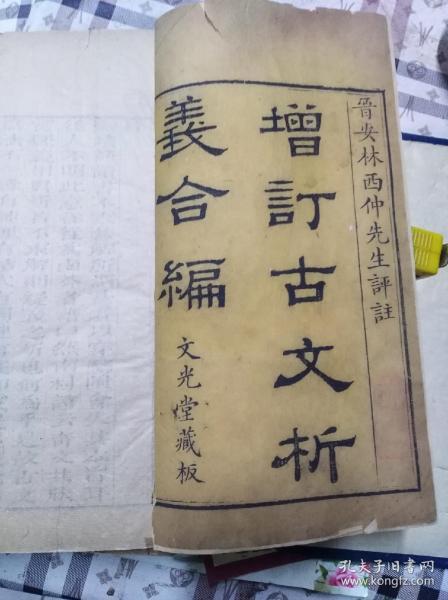 晉安林西仲先生評註
增訂古文析
義合編
文光堂藏板
孔夫子旧书网